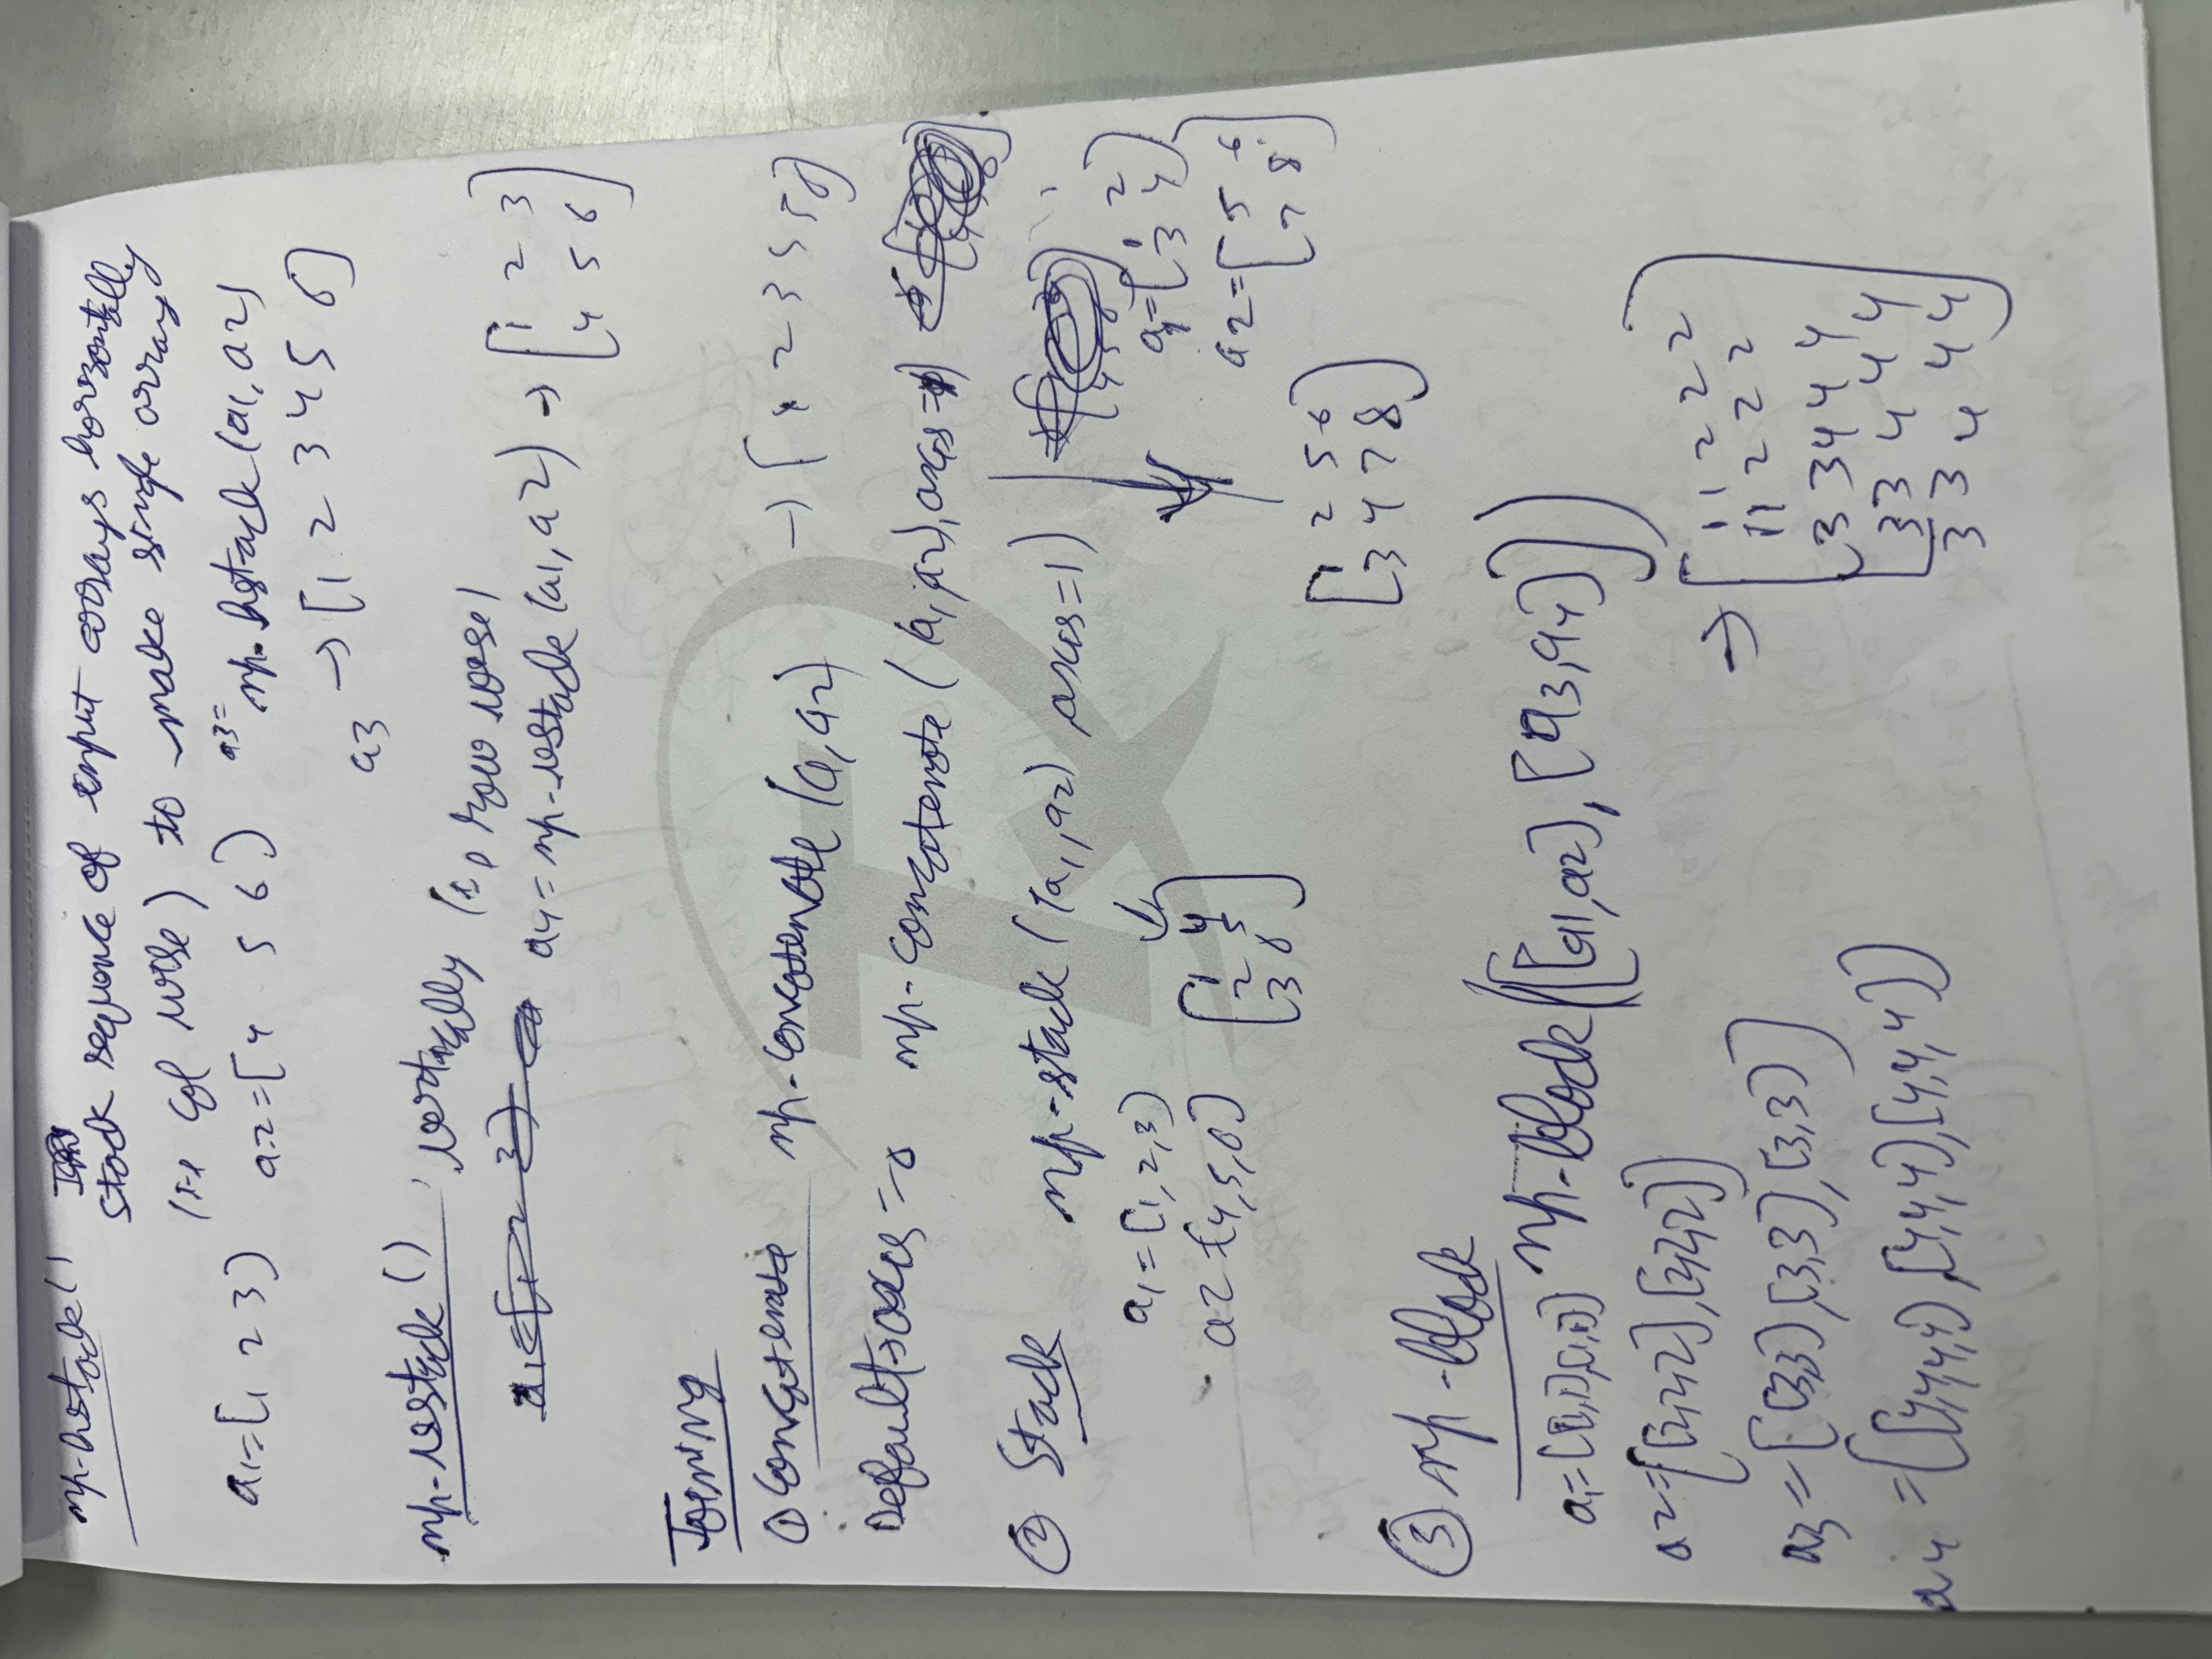 np.hstack()
stack sequence of input arrays horizontally
(i.e col wise) to make single array
a1=[1 2 3] a2=[4 5 6] a3= np.hstack(a1, a2)
a3 → [1 2 3 4 5 6]
np.vstack() vertically (i.e row wise)
a1=[1 2 3]
a4 = np.vstack(a1, a2) → [1 2 3
4 5 6]
Joining
① Concatenate np.concatenate(a1, a2) → [1 2 3 4 5 6]
Default → axis = 0 np.concatenate((a1, a2), axis=1)
② Stack np.stack((a1, a2) axis=1)
a1 = [1, 2, 3]
a2 = [4, 5, 6]
[1 4
2 5
3 6]
a1 = [1 2
3 4]
a2 = [5 6
7 8]
[1 2 5 6
3 4 7 8]
③ np.block
np.block([[a1, a2], [a3, a4]])
a1 = [[1,1],[1,1]]
a2 = [[2,2,2],[2,2,2]]
a3 = [[3,3],[3,3],[3,3]]
a4 = [[4,4,4,4],[4,4,4],[4,4,4]]
→ [1 1 2 2 2
1 1 2 2 2
3 3 4 4 4
3 3 4 4 4
3 3 4 4 4]